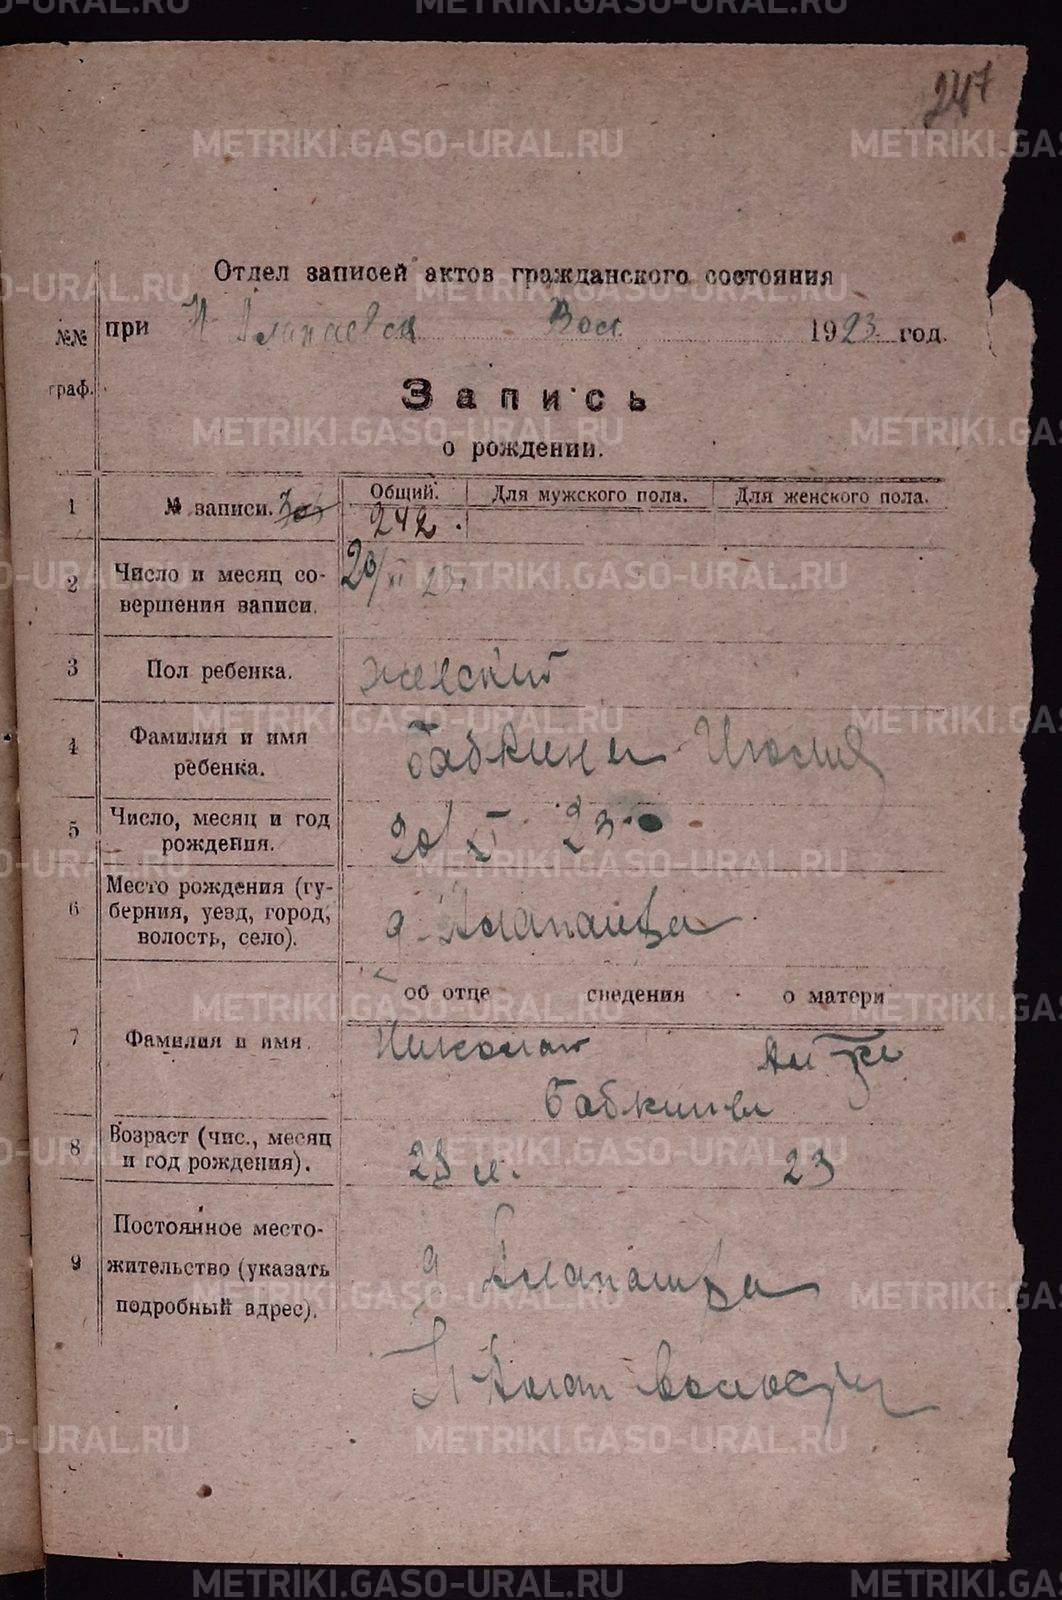 247
Отдел записей актов гражданского состояния
при Н Алапаевск Вол 1923 год.
№№
граф.
Запись
о рождении.
1 № записи. Общий. Для мужского пола. Для женского пола.
242.
2 Число и месяц совершения записи. 20/XI 23
3 Пол ребенка. женский
4 Фамилия и имя
ребенка. Бабкина Июлия
5 Число, месяц и год
рождения. 20 XI 23
6 Место рождения (гу-
берния, уезд, город,
волость, село). д
об отце сведения о матери
7 Фамилия и имя. Николай
Бабкины
8 Возраст (чис., месяц
и год рождения). 23 л. 23
9 Постоянное место-
жительство (указать
подробный адрес). д
Н Алап волости
METRIKI.GASO-URAL.RU